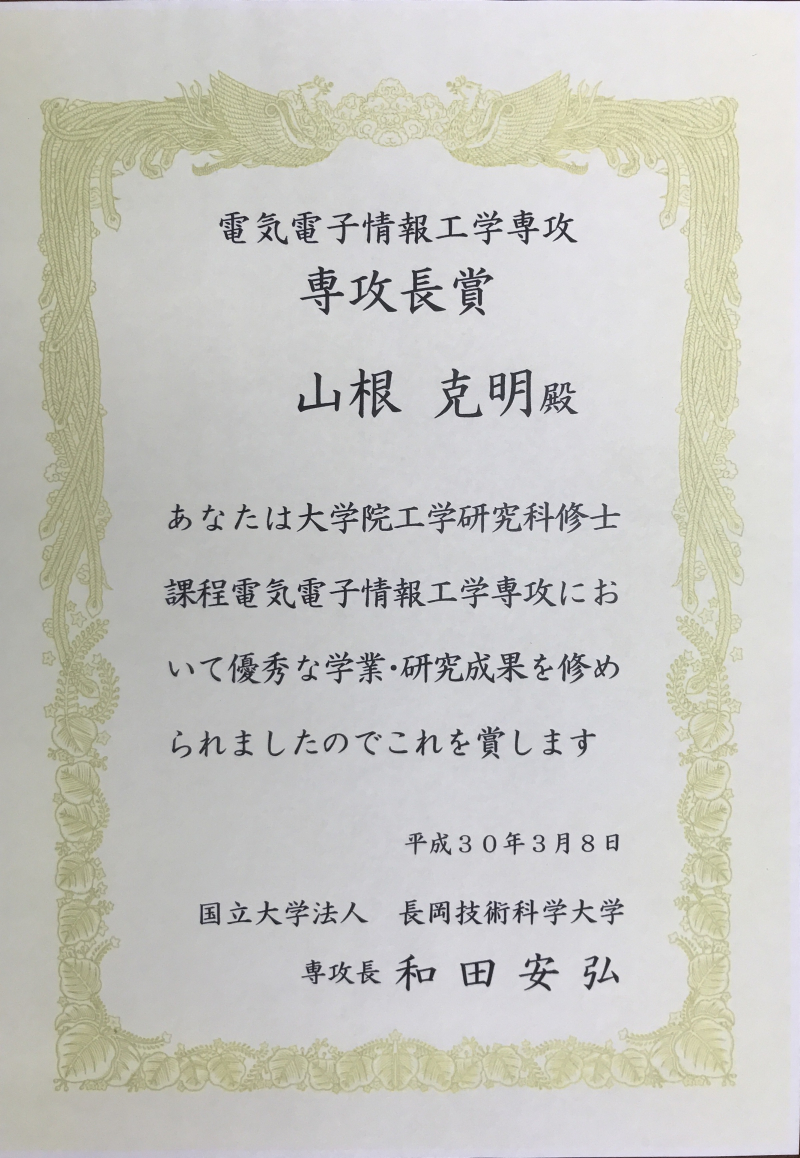 電気電子情報工学専攻
専攻長賞
山根 克明殿
あなたは大学院工学研究科修士
課程電気電子情報工学専攻にお
いて優秀な学業・研究成果を修め
られましたのでこれを賞します
平成３０年３月８日
国立大学法人　長岡技術科学大学
専攻長 和田安弘